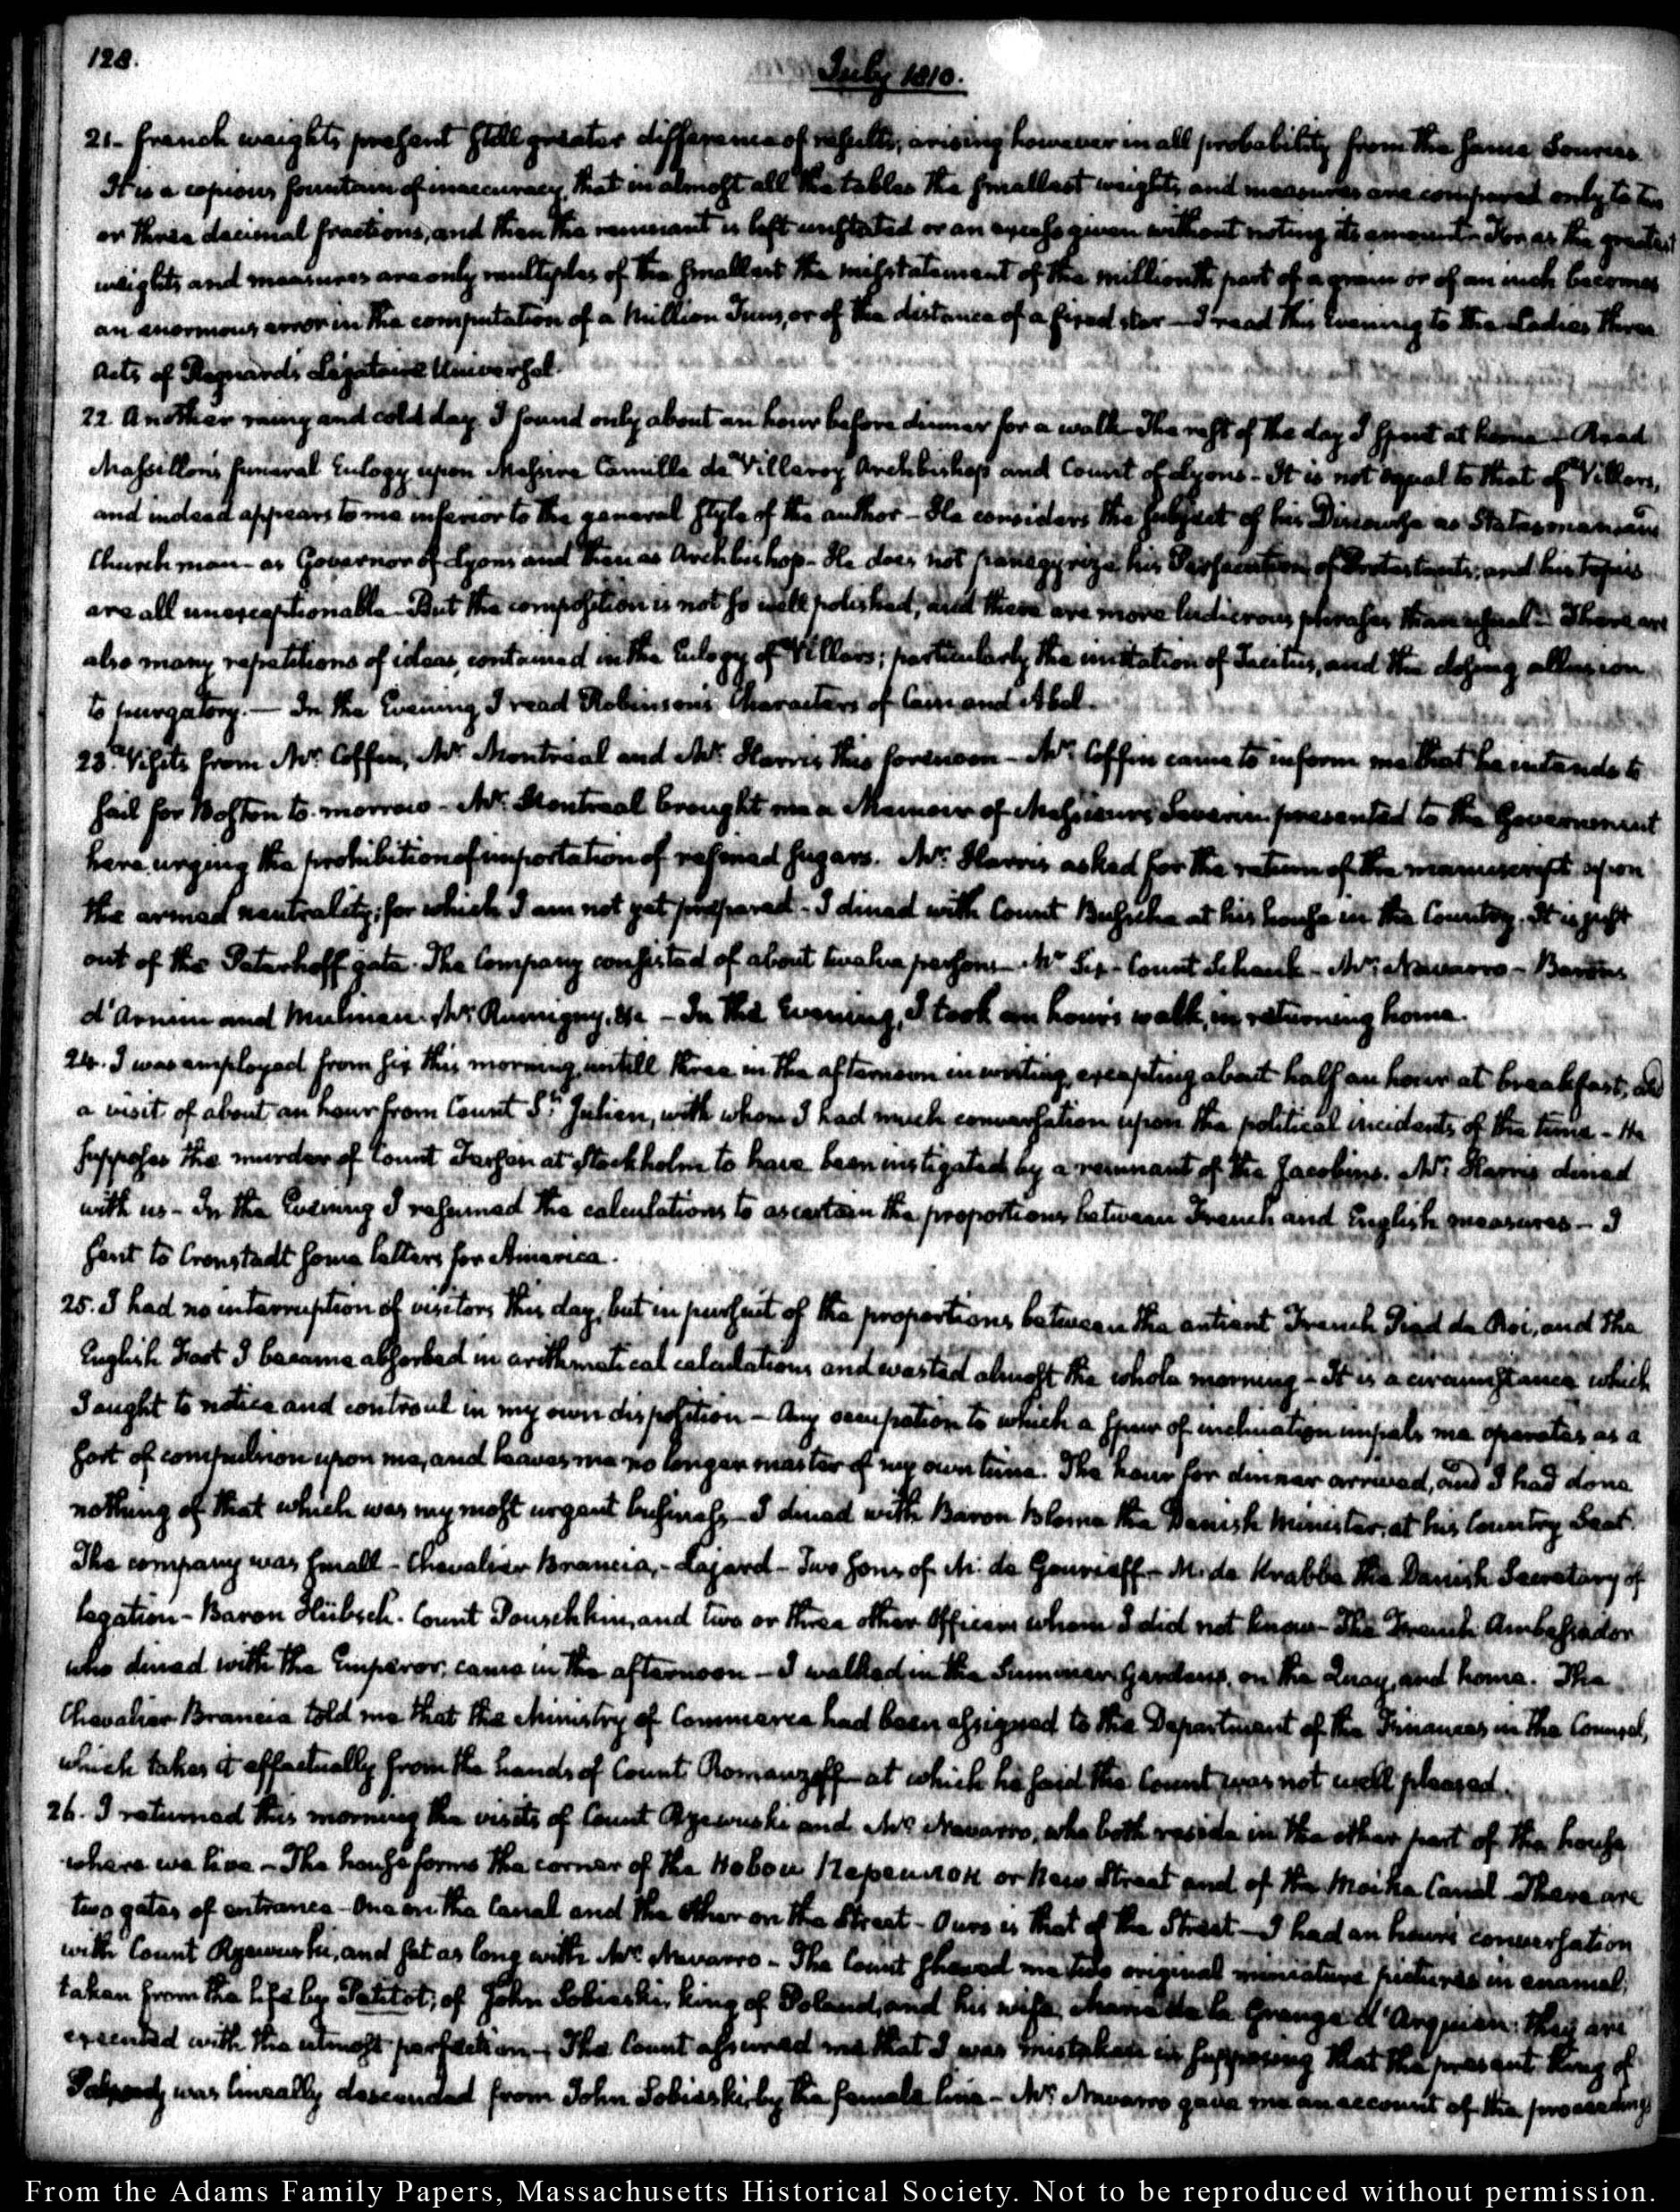 128.
July 1810.
21. French weights present still greater differences of results, arising however in all probability from the same Sources
It is a copious fountain of inaccuracy, that in almost all the tables the smallest weights and measures are compared only to two
or three decimal fractions, and then the remnant is left unstated or an excess given without noting its amount. For as the greatest
weights and measures are only multiples of the smallest the misstatement of the millionth part of a grain or of an inch becomes
an enormous error in the computation of a Million Tuns, or of the distance of a fixed star — I read this Evening to the Ladies three
Acts of Regnard's Légataire Universel.
22. Another rainy and cold day. I found only about an hour before dinner for a walk — The rest of the day I spent at home — Read
Massillon's funeral Eulogy upon Messire Camille de Villeroy Archbishop and Count of Lyons — It is not equal to that of Villars,
and indeed appears to me inferior to the general style of the author — He considers the subject of his Discourse as Statesman and
Churchman — as Governor of Lyons and then as Archbishop — He does not panegyrize his Persecution of Protestants; and his topics
are all unexceptionable — But the composition is not so well polished, and there are more ludicrous phrases than usual — There are
also many repetitions of ideas, contained in the Eulogy of Villars; particularly the imitation of Tacitus, and the closing allusion
to purgatory. — In the Evening I read Robinson's Characters of Cain and Abel.
23. Visits from Mr. Coffin, Mr. Montréal and Mr. Harris this forenoon — Mr. Coffin came to inform me that he intends to
sail for Boston to-morrow — Mr. Montreal brought me a Memoir of Messieurs Severin presented to the Government
here, urging the prohibition of importation of refined sugars. Mr. Harris asked for the return of the manuscript upon
the armed neutrality; for which I am not yet prepared — I dined with Count Bussche at his house in the Country. It is just
out of the Peterhoff gate. The Company consisted of about twelve persons — Mr. Six — Count Schenk — Mr. Navarro — Barons
d'Arnim and Mulinen. Mr. Rumigny, &c — In the Evening, I took an hour's walk, in returning home.
24. I was employed from six this morning, untill three in the afternoon in writing, excepting about half an hour at breakfast, and
a visit of about an hour from Count St. Julien, with whom I had much conversation upon the political incidents of the time — He
supposes the murder of Count Fersen at Stockholm to have been instigated by a remnant of the Jacobins. Mr. Harris dined
with us — In the Evening I resumed the calculations to ascertain the proportions between French and English measures — I
sent to Cronstadt some letters for America.
25. I had no interruption of visitors this day, but in pursuit of the proportions between the antient French Pied de Roi, and the
English Foot I became absorbed in arithmetical calculations and wasted almost the whole morning — It is a circumstance which
I ought to notice and controul in my own disposition — Any occupation to which a spur of inclination impels me operates as a
sort of compulsion upon me, and leaves me no longer master of my own time. The hour for dinner arrived, and I had done
nothing of that which was my most urgent business — I dined with Baron Blome the Danish Minister, at his Country Seat.
The company was small — Chevalier Brancia, — Lajard — Two sons of M. de Gourieff — M. de Krabbe the Danish Secretary of
legation — Baron Hübsch. Count Pouschkin, and two or three other Officers whom I did not know — The French Ambassador
who dined with the Emperor, came in the afternoon — I walked in the Summer Gardens, on the Quay, and home. The
Chevalier Brancia told me that the Ministry of Commerce had been assigned to the Department of the Finances in the Counsel,
which takes it effectually from the hands of Count Romanzoff — at which he said the Count was not well pleased.
26. I returned this morning the visits of Count Rzewuski and Mr. Navarro, who both reside in the other part of the house
where we live — The house forms the corner of the Новои or New Street and of the Moika Canal — There are
two gates of entrance — One on the Canal and the other on the Street — Ours is that of the Street — I had an hour's conversation
with Count Rzewuski, and sat as long with Mr. Navarro — The Count shewed me two original miniature pictures in enamel,
taken from the life by Petitot; of John Sobieski, king of Poland, and his wife Marie de la Grange d'Arquien: they are
executed with the utmost perfection — The Count assured me that I was mistaken in supposing that the present king of
was lineally descended from John Sobieski, by the female line — Mr. Navarro gave me an account of the proceedings
From the Adams Family Papers, Massachusetts Historical Society. Not to be reproduced without permission.